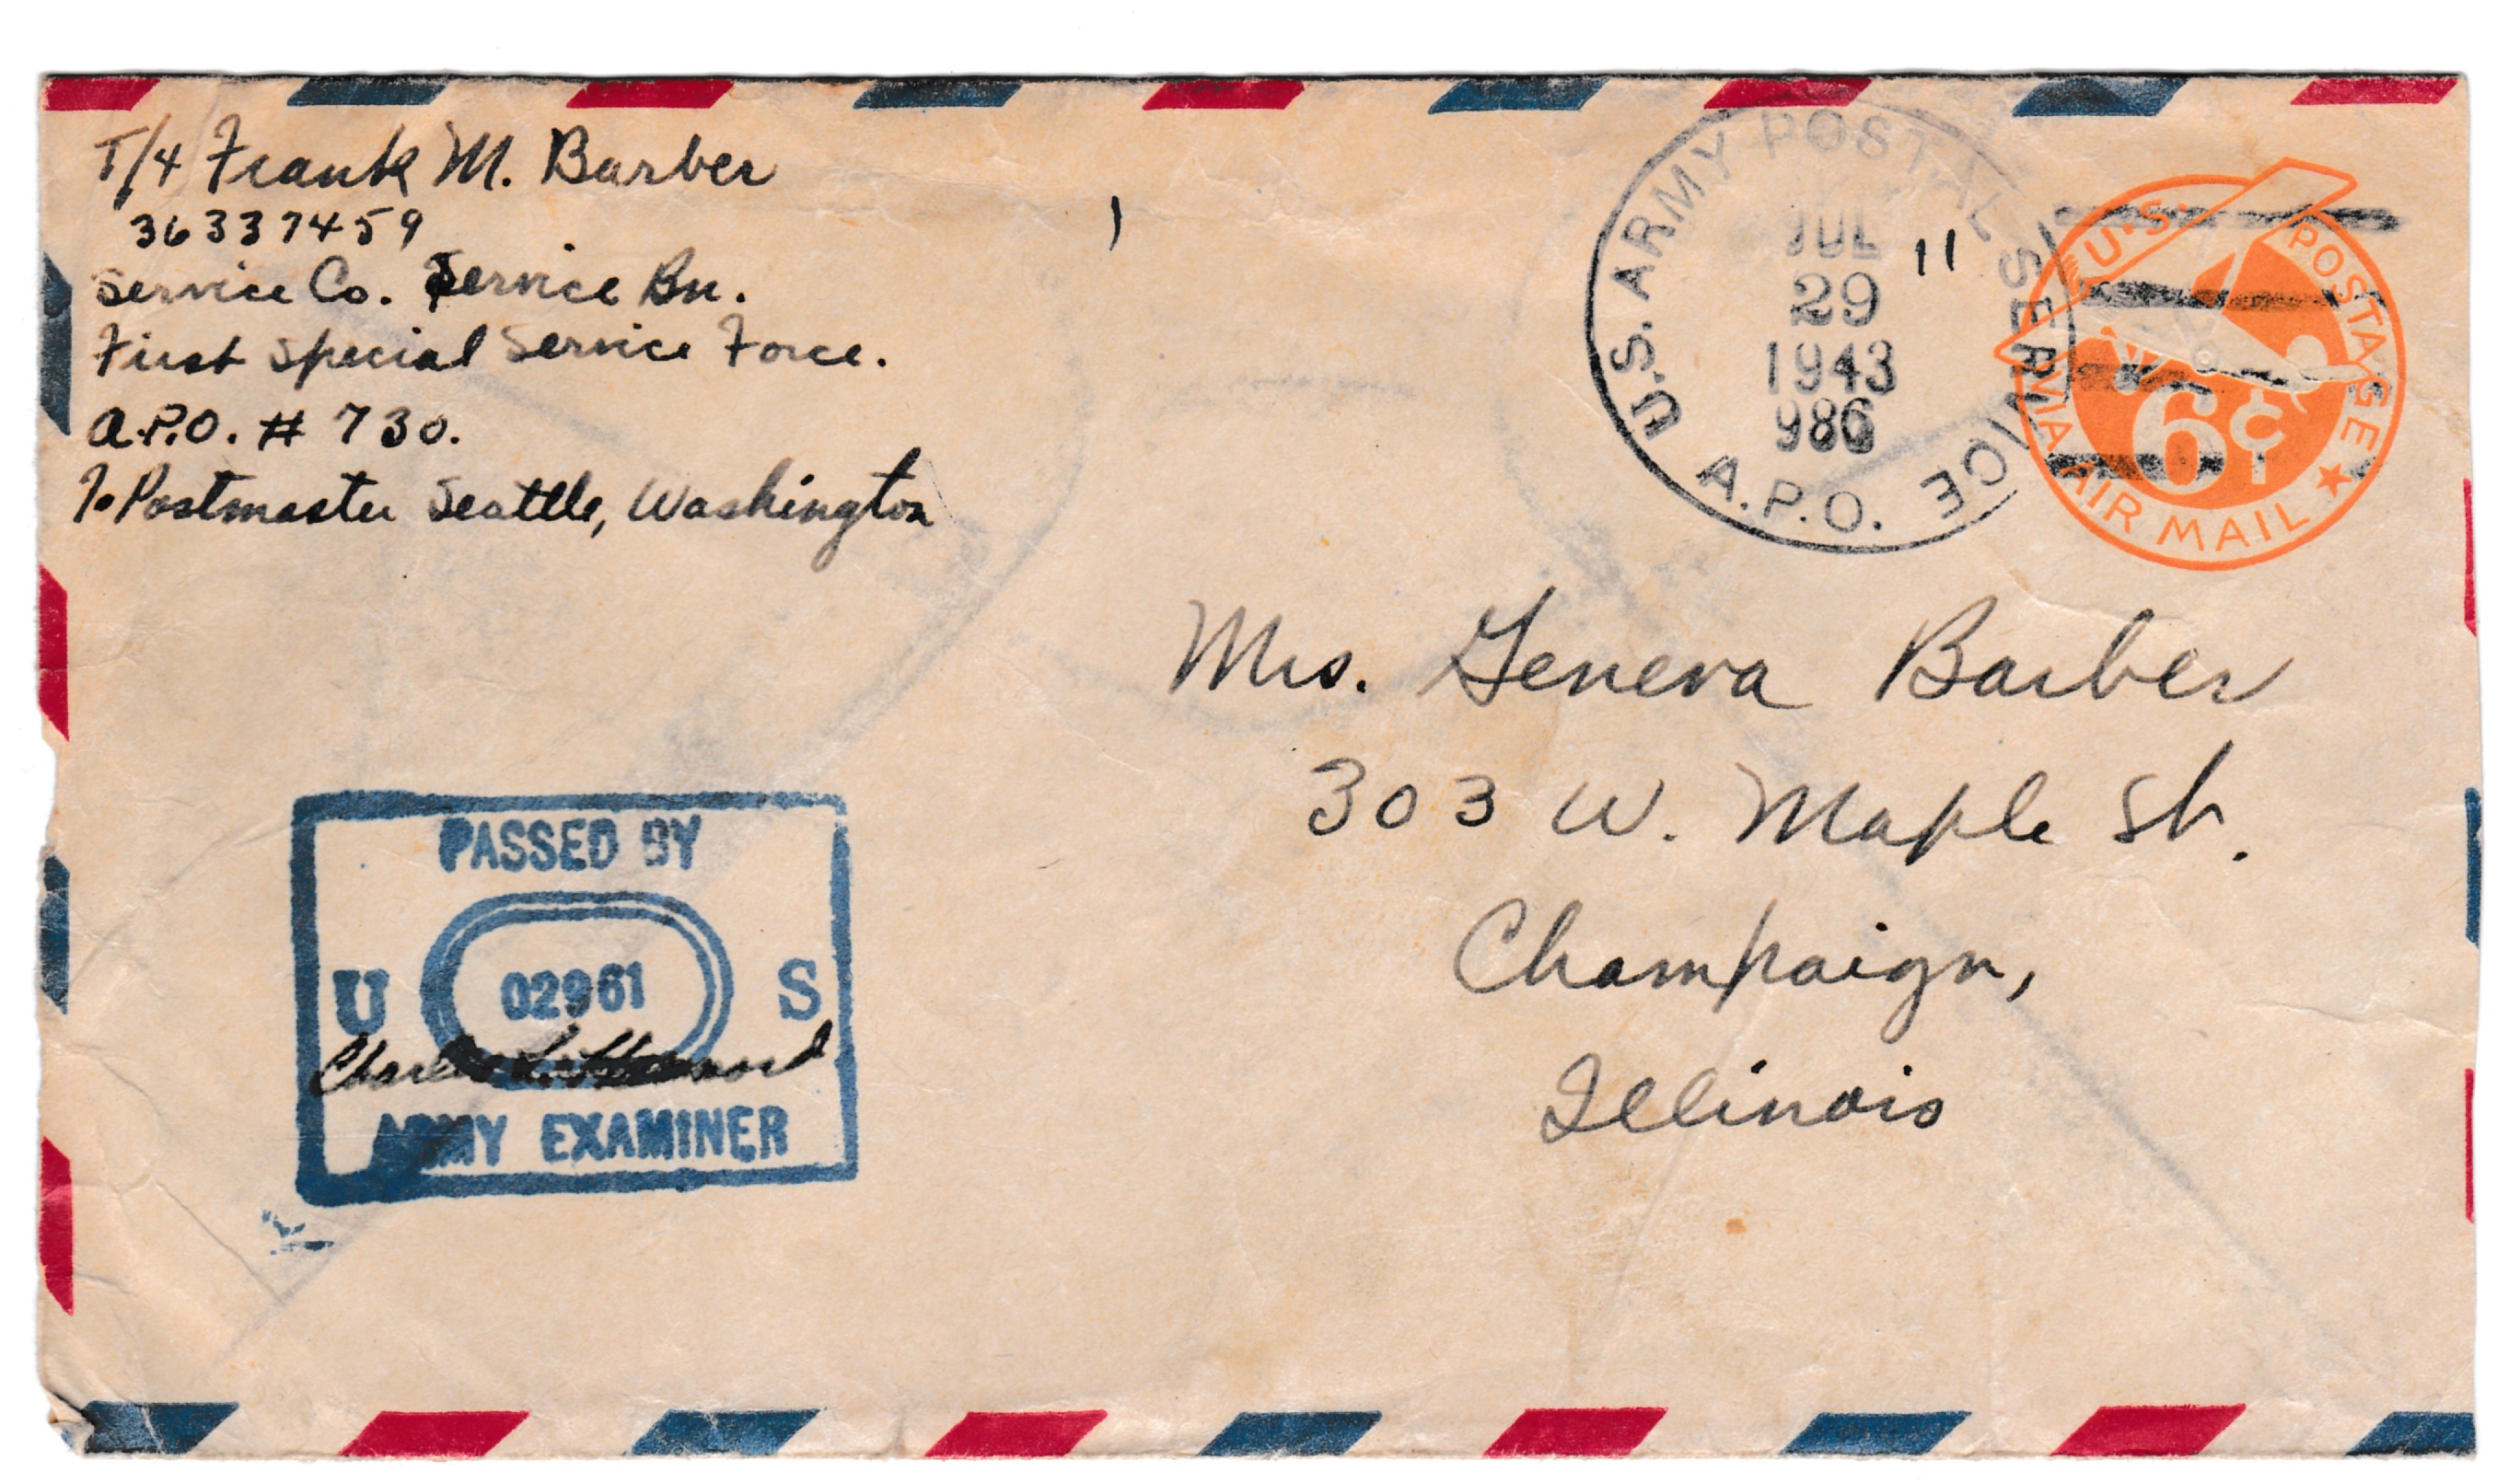 T/4 Frank M. Barber
36337459
Service Co. Service Bn.
First Special Service Force.
A.P.O. # 730.
To Postmaster Seattle, Washington
U.S. ARMY POSTAL SERVICE
JUL
29
1943
986
A.P.O.
U.S. POSTAGE
6¢
VIA AIR MAIL
Mrs. Geneva Barber
303 W. Maple St.
Champaign,
Illinois
PASSED BY
U 02961 S
Charles L.
ARMY EXAMINER